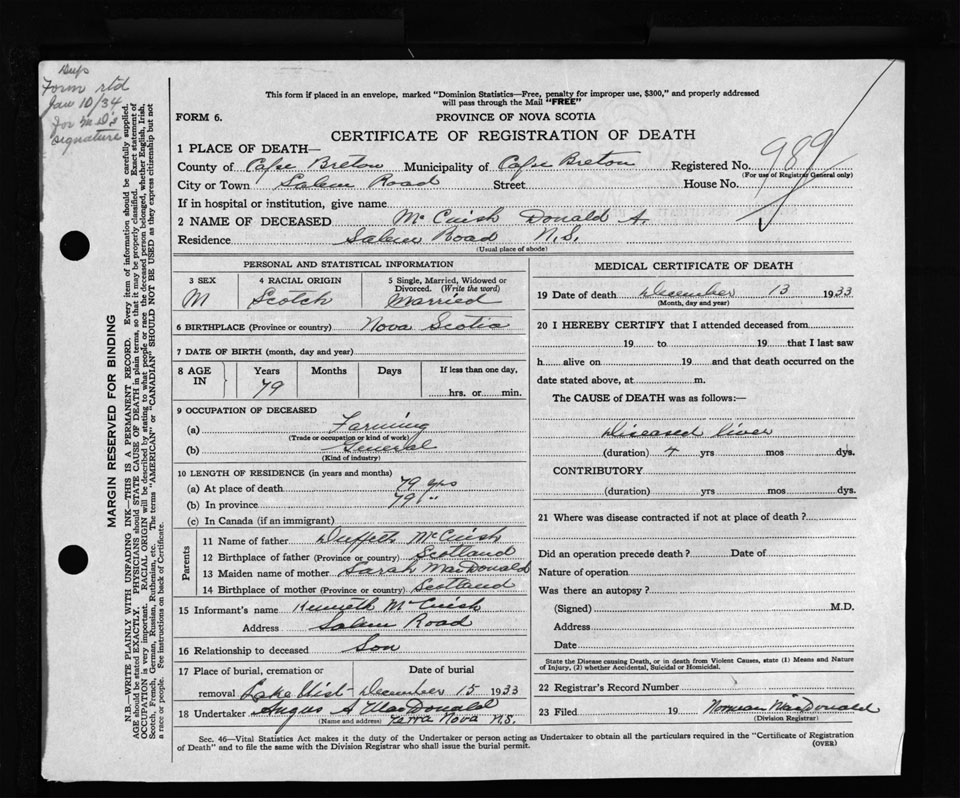 Dup
Form rtd
Jan 10/34
for M.D's
signature
MARGIN RESERVED FOR BINDING
N.B.—WRITE PLAINLY WITH UNFADING INK—THIS IS A PERMANENT RECORD. Every item of information should be carefully supplied.
AGE should be stated EXACTLY. PHYSICIANS should STATE CAUSE OF DEATH in plain terms, so that it may be properly classified. Exact statement of
OCCUPATION is very important. RACIAL ORIGIN will be described by stating to what people or race the deceased person belonged, whether English, Irish,
Scotch, French, German, Russian, Ruthenian, etc. The terms "AMERICAN" or "CANADIAN" SHOULD NOT BE USED as they express citizenship but not
a race or people. See instructions on back of Certificate.
This form if placed in an envelope, marked "Dominion Statistics—Free, penalty for improper use, $300," and properly addressed
will pass through the Mail "FREE"
FORM 6. PROVINCE OF NOVA SCOTIA
CERTIFICATE OF REGISTRATION OF DEATH
1 PLACE OF DEATH—
County of Cape Breton Municipality of Cape Breton Registered No. 989
(For use of Registrar General only)
City or Town Salem Road Street House No.
If in hospital or institution, give name
2 NAME OF DECEASED McCuish Donald A.
Residence Salem Road N.S.
(Usual place of abode)
PERSONAL AND STATISTICAL INFORMATION
3 SEX 4 RACIAL ORIGIN 5 Single, Married, Widowed or
Divorced. (Write the word)
M Scotch Married
6 BIRTHPLACE (Province or country) Nova Scotia
7 DATE OF BIRTH (month, day and year)
8 AGE IN Years Months Days If less than one day,
79 hrs. or min.
9 OCCUPATION OF DECEASED
(a) Farming
(Trade or occupation or kind of work)
(b) General
(Kind of industry)
10 LENGTH OF RESIDENCE (in years and months)
(a) At place of death 79 yrs
(b) In province 79 "
(c) In Canada (if an immigrant)
Parents
11 Name of father McCuish
12 Birthplace of father (Province or country) Scotland
13 Maiden name of mother Sarah MacDonald
14 Birthplace of mother (Province or country) Scotland
15 Informant's name Kenneth McCuish
Address Salem Road
16 Relationship to deceased Son
17 Place of burial, cremation or Date of burial
removal Lake Uist December 15 1933
18 Undertaker Angus A MacDonald
(Name and address) Terra Nova N.S.
MEDICAL CERTIFICATE OF DEATH
19 Date of death December 13 1933
(Month, day and year)
20 I HEREBY CERTIFY that I attended deceased from
19 to 19 that I last saw
h alive on 19 and that death occurred on the
date stated above, at m.
The CAUSE of DEATH was as follows:—
Diseased liver
(duration) 4 yrs mos dys.
CONTRIBUTORY
(duration) yrs mos dys.
21 Where was disease contracted if not at place of death?
Did an operation precede death? Date of
Nature of operation
Was there an autopsy?
(Signed) M.D.
Address
Date
State the Disease causing Death, or in death from Violent Causes, state (1) Means and Nature
of Injury, (2) whether Accidental, Suicidal or Homicidal.
22 Registrar's Record Number
23 Filed 19 Norman MacDonald
(Division Registrar)
Sec. 46—Vital Statistics Act makes it the duty of the Undertaker or person acting as Undertaker to obtain all the particulars required in the "Certificate of Registration
of Death" and to file the same with the Division Registrar who shall issue the burial permit. (OVER)